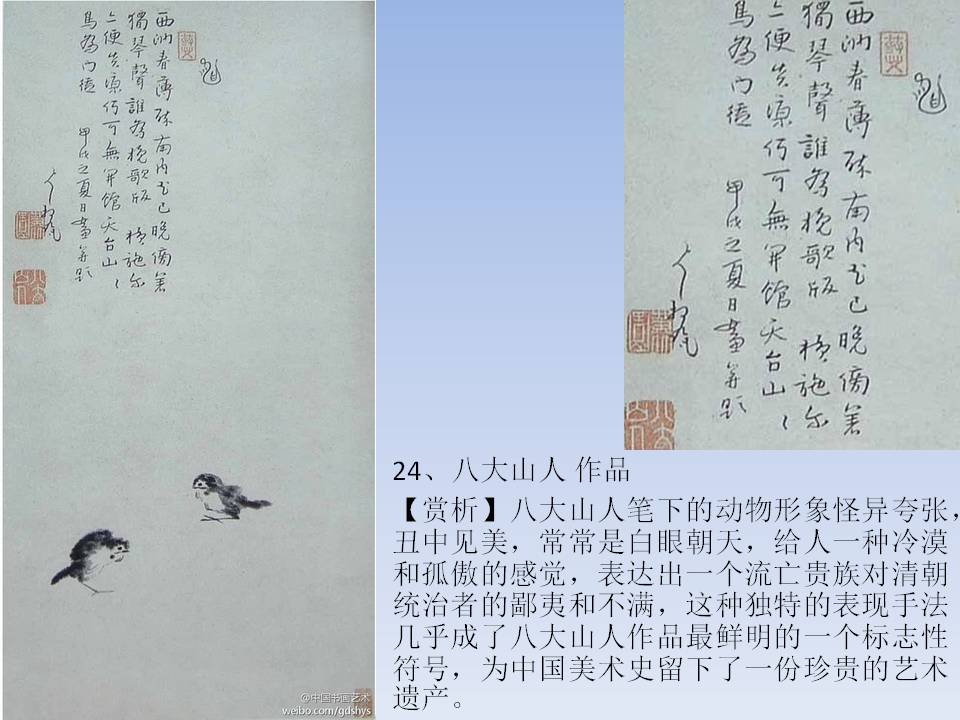 西洲春薄醉南内花已晚傍着
獨琴聲誰為挽歌版 橫施尔
亦便炎涼何可無開館天台山〻
鳥為門徒 甲戌之夏日畫并題
八大山人
@中国书画艺术
weibo.com/gdshys
西洲春薄醉南内花已晚傍着
獨琴聲誰為挽歌版 橫施尔
亦便炎涼何可無開館天台山〻
鳥為門徒 甲戌之夏日畫并題
八大山人
24、八大山人 作品
【赏析】八大山人笔下的动物形象怪异夸张，
丑中见美，常常是白眼朝天，给人一种冷漠
和孤傲的感觉，表达出一个流亡贵族对清朝
统治者的鄙夷和不满，这种独特的表现手法
几乎成了八大山人作品最鲜明的一个标志性
符号，为中国美术史留下了一份珍贵的艺术
遗产。